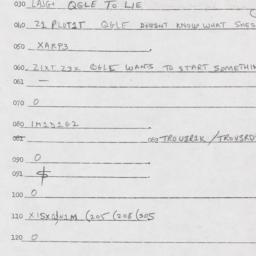 030 LAIGH QGLE TO LIE
040 21 PLOTST QGLE DOESNT KNOW WHAT SHES
050 XARP3
060 ZIXT Z3X QGLE WANTS TO START SOMETHIN
061 —
070 0
080 1M1S1G2
081 082 TROUBR1K / TROUBRD
090 0
091 $
100 0
110 (205 (208 (305
120 0